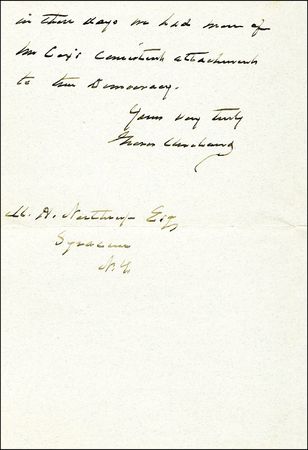 in these days we had more of
Mr Cox's consistent attachment
to the Democracy.
Yours very truly
Grover Cleveland
M. H. Northrup Esq
Syracuse
N.Y.